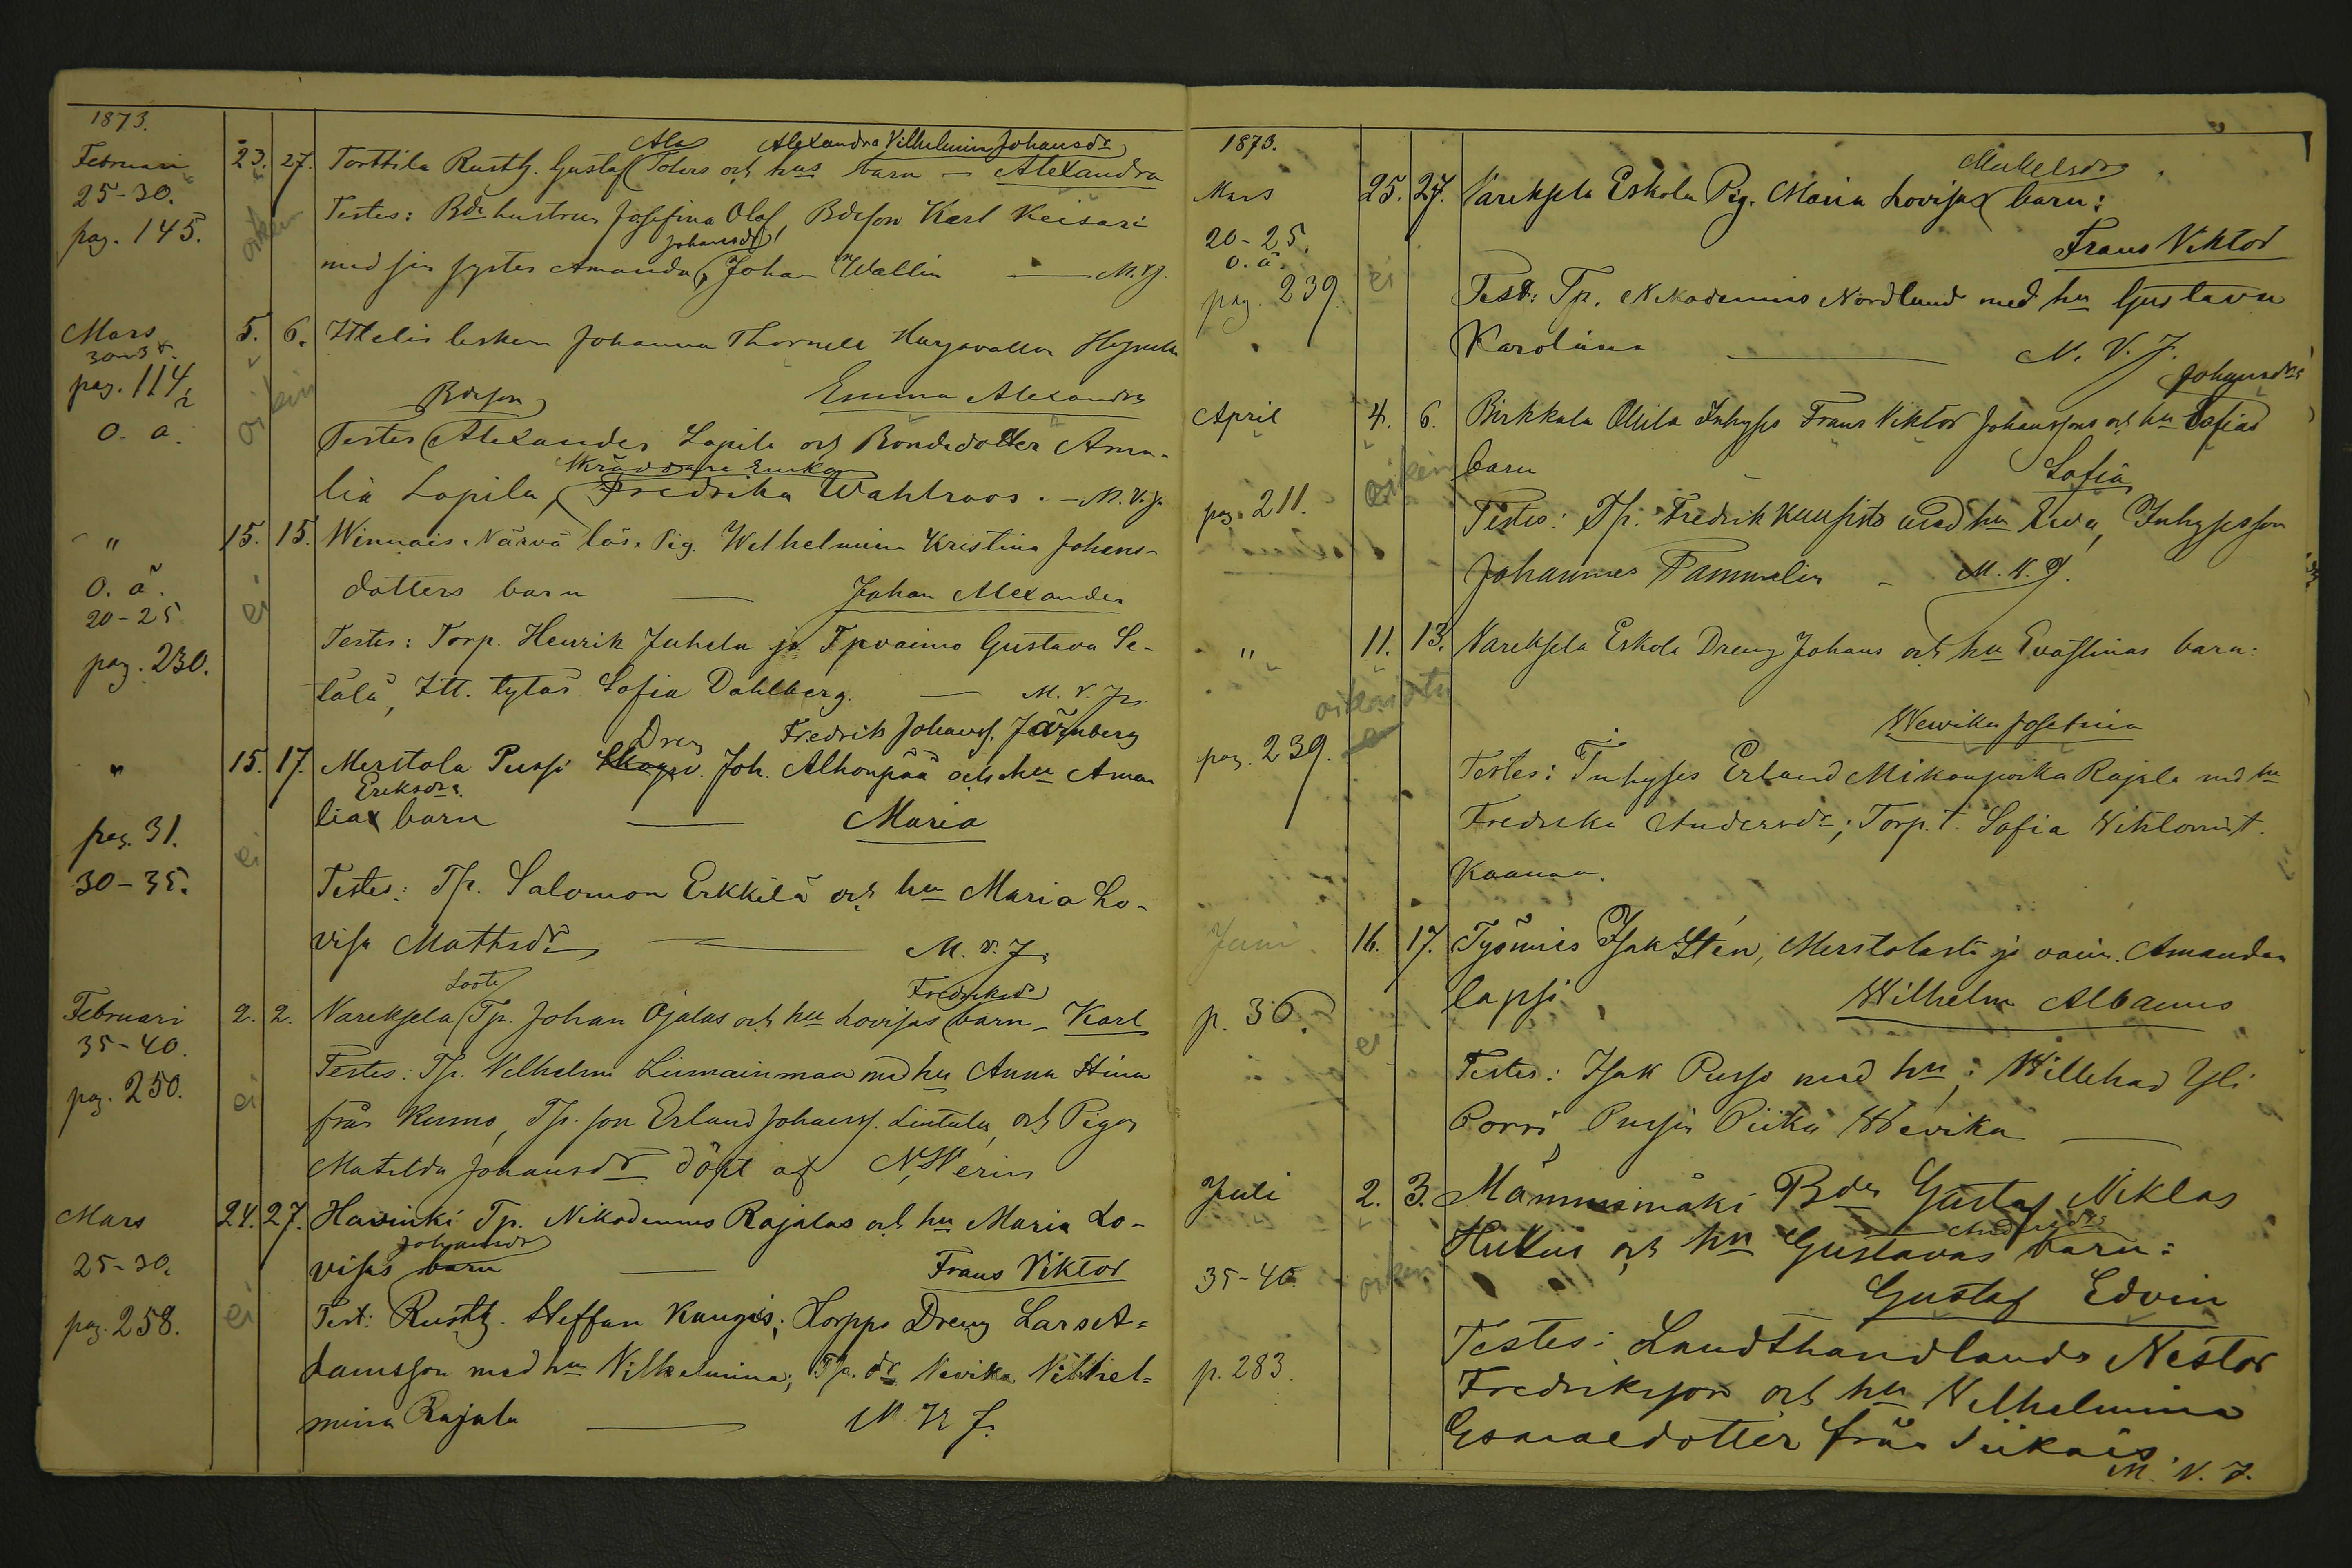 1873.
Ala Alexandra Vilhelmin Johansdr
Februari 23. 27. Torttila Rustg. Gustaf Tolvis och hus barn — Alexandra
25-30.
pag. 145. oikein
Testes: Bde hustrun Josefina Olof, Bdeson Karl Keisari
Johansdr
med sin syster Amanda, Johan Wallin — M.V.J.
Mars 5. 6. Ittelis Johanna Thornell Harjavalta
30-35.
pag. 114½ oikein
o. ä.
Bdeson Emma Alexandra
Testes Alexander Lapila och Bondedotter Ama-
Skräddare Enka
lia Lapila, Fredrika Wahlroos. — M.V.J.
" 15. 15. Winnais Närvä lös. Pig. Wilhelmina Kristina Johans-
o. ä.
20-25 ei
pag. 230.
dotters barn — Johan Alexander
Testes: Torp. Henrik Juhela ja Tpvaimo Gustava Se-
tälä, Itt. tytär Sofia Dahlberg. — M.V.J.
Dren Fredrik Johanss. Järnberg
" 15. 17. Merstola Pussi Joh. Alhonpää och hu Ama
Eriksdrs
pag. 31. ei
30-35.
lias barn — Maria
Testes: Tp. Salomon Erkkilä och hu Maria Lo-
visa Mattsdr — M.V.J.
Looti Fredriksdr
Februari 2. 2. Nareksela Tp. Johan Ojalas och hu Lovisas barn – Karl
35-40.
pag. 250. ei
Testes: Tp. Vilhelm Liinmainmaa med hu Anna Stina
från Kumo, Tp. son Erland Johanss. Lintula, och Pigan
Matilda Johansdr döpt af N. Werin
Mars 24. 27. Havinki Tp. Nikodemus Rajalas och hu Maria Lo-
25-30.
pag. 258. ei
Johansdr
visas barn — Frans Viktor
Test: Rustg. Steffan Kaugis; Torppa Dreng Lars A=
damsson med hu Vilhelmina; Tp. dr Vevika Vilhel=
mina Rajala — M.V.J.
1873.
Mikelsdr
Mars 25. 27. Nareksela Eskola Pig. Maria Lovisas barn:
20-25.
o. ä.
pag. 239. ei
Frans Viktor
Test: Tp. Nikodemus Nordlund med hu Gustava
Karolina — M.V.J.
Johansdrs
April 4. 6. Birkkala Ollila Inhyses Frans Viktor Johanssons och hu Sofias
barn Sofia
pag. 211. oikein
Testes: Tp. Fredrik Kuusisto med hu Eeva, Inhysesson
Johannes Tammelin – M.V.J.
" 11. 13. Nareksela Eskola Dreng Johans och hu Evastinas barn:
oikaistu
Wewika Josefina
pag. 239.
Testes: Inhyses Erland Mikonpoika Rajala med hu
Fredrika Andersdr; Torp. t. Sofia
Kaanaa.
Juni 16. 17. Työmies Isak Stén, Merstolasta ja vaim. Amandan
lapsi Wilhelm Albanus
p. 36. ei
Testes: Isak Pusso med hu; Willehad Yli
Porri, Pussin Piika Wevika —
Juli 2. 3. Mämmimäki Bden Gustaf Niklas
Andersdrs
och hu Gustavas barn:
35-40. oikein
Gustaf Edvin
p. 283.
Testes: Landthandlande Nestor
Fredriksson och hu Vilhelmina
Esaiaedotter från Siikais.
M.V.J.